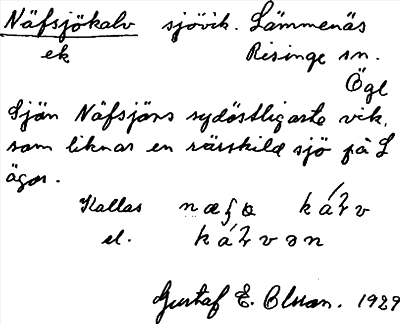 Näfsjökalv sjövik. Lämmenäs
ek Risinge sn.
Ögl
Sjön Näfsjöns sydöstligaste vik,
som liknar en särskild sjö på L
ägor.
Kallas
el.
Gustaf E. Olsson. 1929